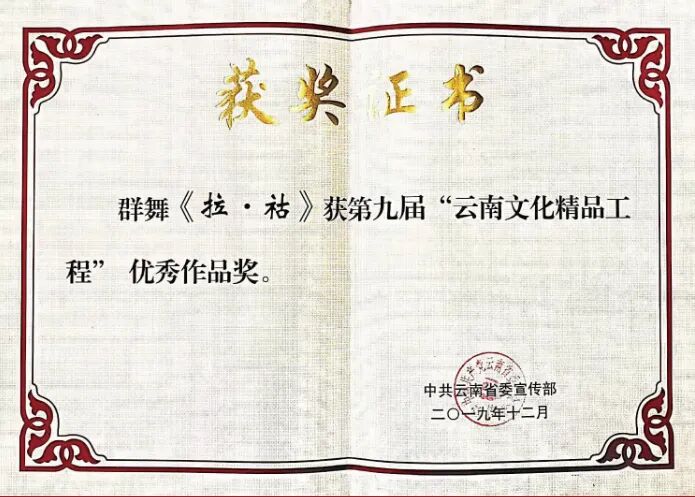 获奖证书
群舞《拉·祜》获第九届“云南文化精品工
程” 优秀作品奖。
中共云南省委宣传部
二〇一九年十二月